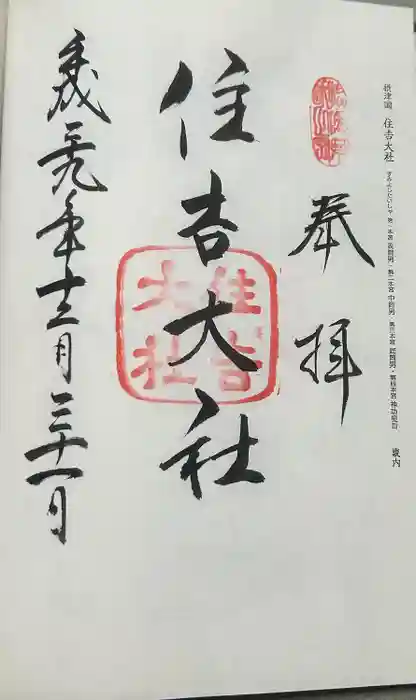 摂津国 住吉大社 すみよしたいしゃ 第一本宮 底筒男・第二本宮 中筒男・第三本宮 表筒男・第四本宮 神功皇后 畿内
奉拝
住吉大社
住吉
大社
平成二十九年十二月三十一日